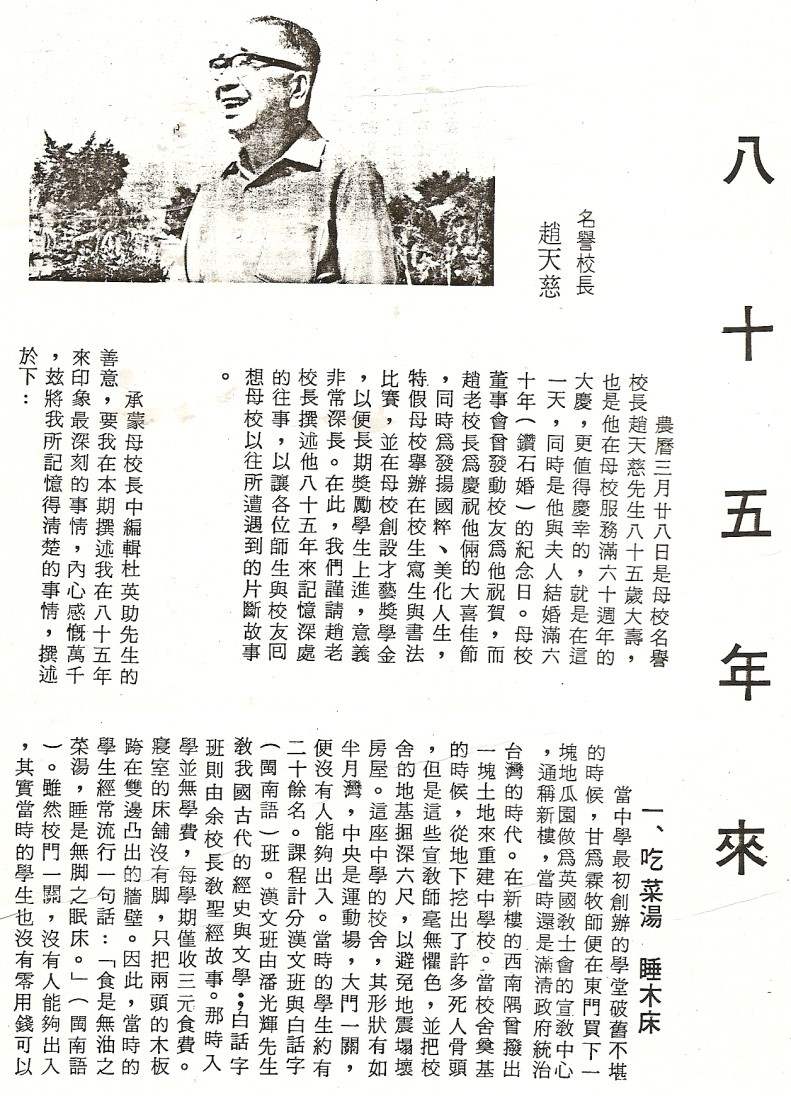 八十五年來
名譽校長
趙天慈
農曆三月廿八日是母校名譽
校長趙天慈先生八十五歲大壽，
也是他在母校服務滿六十週年的
大慶，更值得慶幸的，就是在這
一天，同時是他與夫人結婚滿六
十年（鑽石婚）的紀念日。母校
董事會曾發動校友爲他祝賀，而
趙老校長爲慶祝他倆的大喜佳節
，同時爲發揚國粹、美化人生，
特假母校舉辦在校生寫生與書法
比賽，並在母校創設才藝獎學金
，以便長期獎勵學生上進，意義
非常深長。在此，我們謹請趙老
校長撰述他八十五年來記憶深處
的往事，以讓各位師生與校友回
想母校以往所遭遇到的片斷故事
。
承蒙母校長中編輯杜英助先生的
善意，要我在本期撰述我在八十五年
來印象最深刻的事情，內心感慨萬千
，玆將我所記憶得清楚的事情，撰述
於下：
一、吃菜湯　睡木床
當中學最初創辦的學堂破舊不堪
的時候，甘爲霖牧師便在東門買下一
塊地瓜園做爲英國教士會的宣教中心
，通稱新樓，當時還是滿清政府統治
台灣的時代。在新樓的西南隅曾撥出
一塊土地來重建中學校。當校舍奠基
的時候，從地下挖出了許多死人骨頭
，但是這些宣教師毫無懼色，並把校
舍的地基掘深六尺，以避免地震塌壞
房屋。這座中學的校舍，其形狀有如
半月灣，中央是運動場，大門一關，
便沒有人能夠出入。當時的學生約有
二十餘名。課程計分漢文班與白話字
（閩南語）班。漢文班由潘光輝先生
教我國古代的經史與文學；白話字
班則由余校長教聖經故事。那時入
學並無學費，每學期僅收三元食費。
寢室的床舖沒有脚，只把兩頭的木板
跨在雙邊凸出的牆壁。因此，當時的
學生經常流行一句話：「食是無油之
菜湯，睡是無脚之眠床。」（閩南語
）。雖然校門一關，沒有人能夠出入
，其實當時的學生也沒有零用錢可以